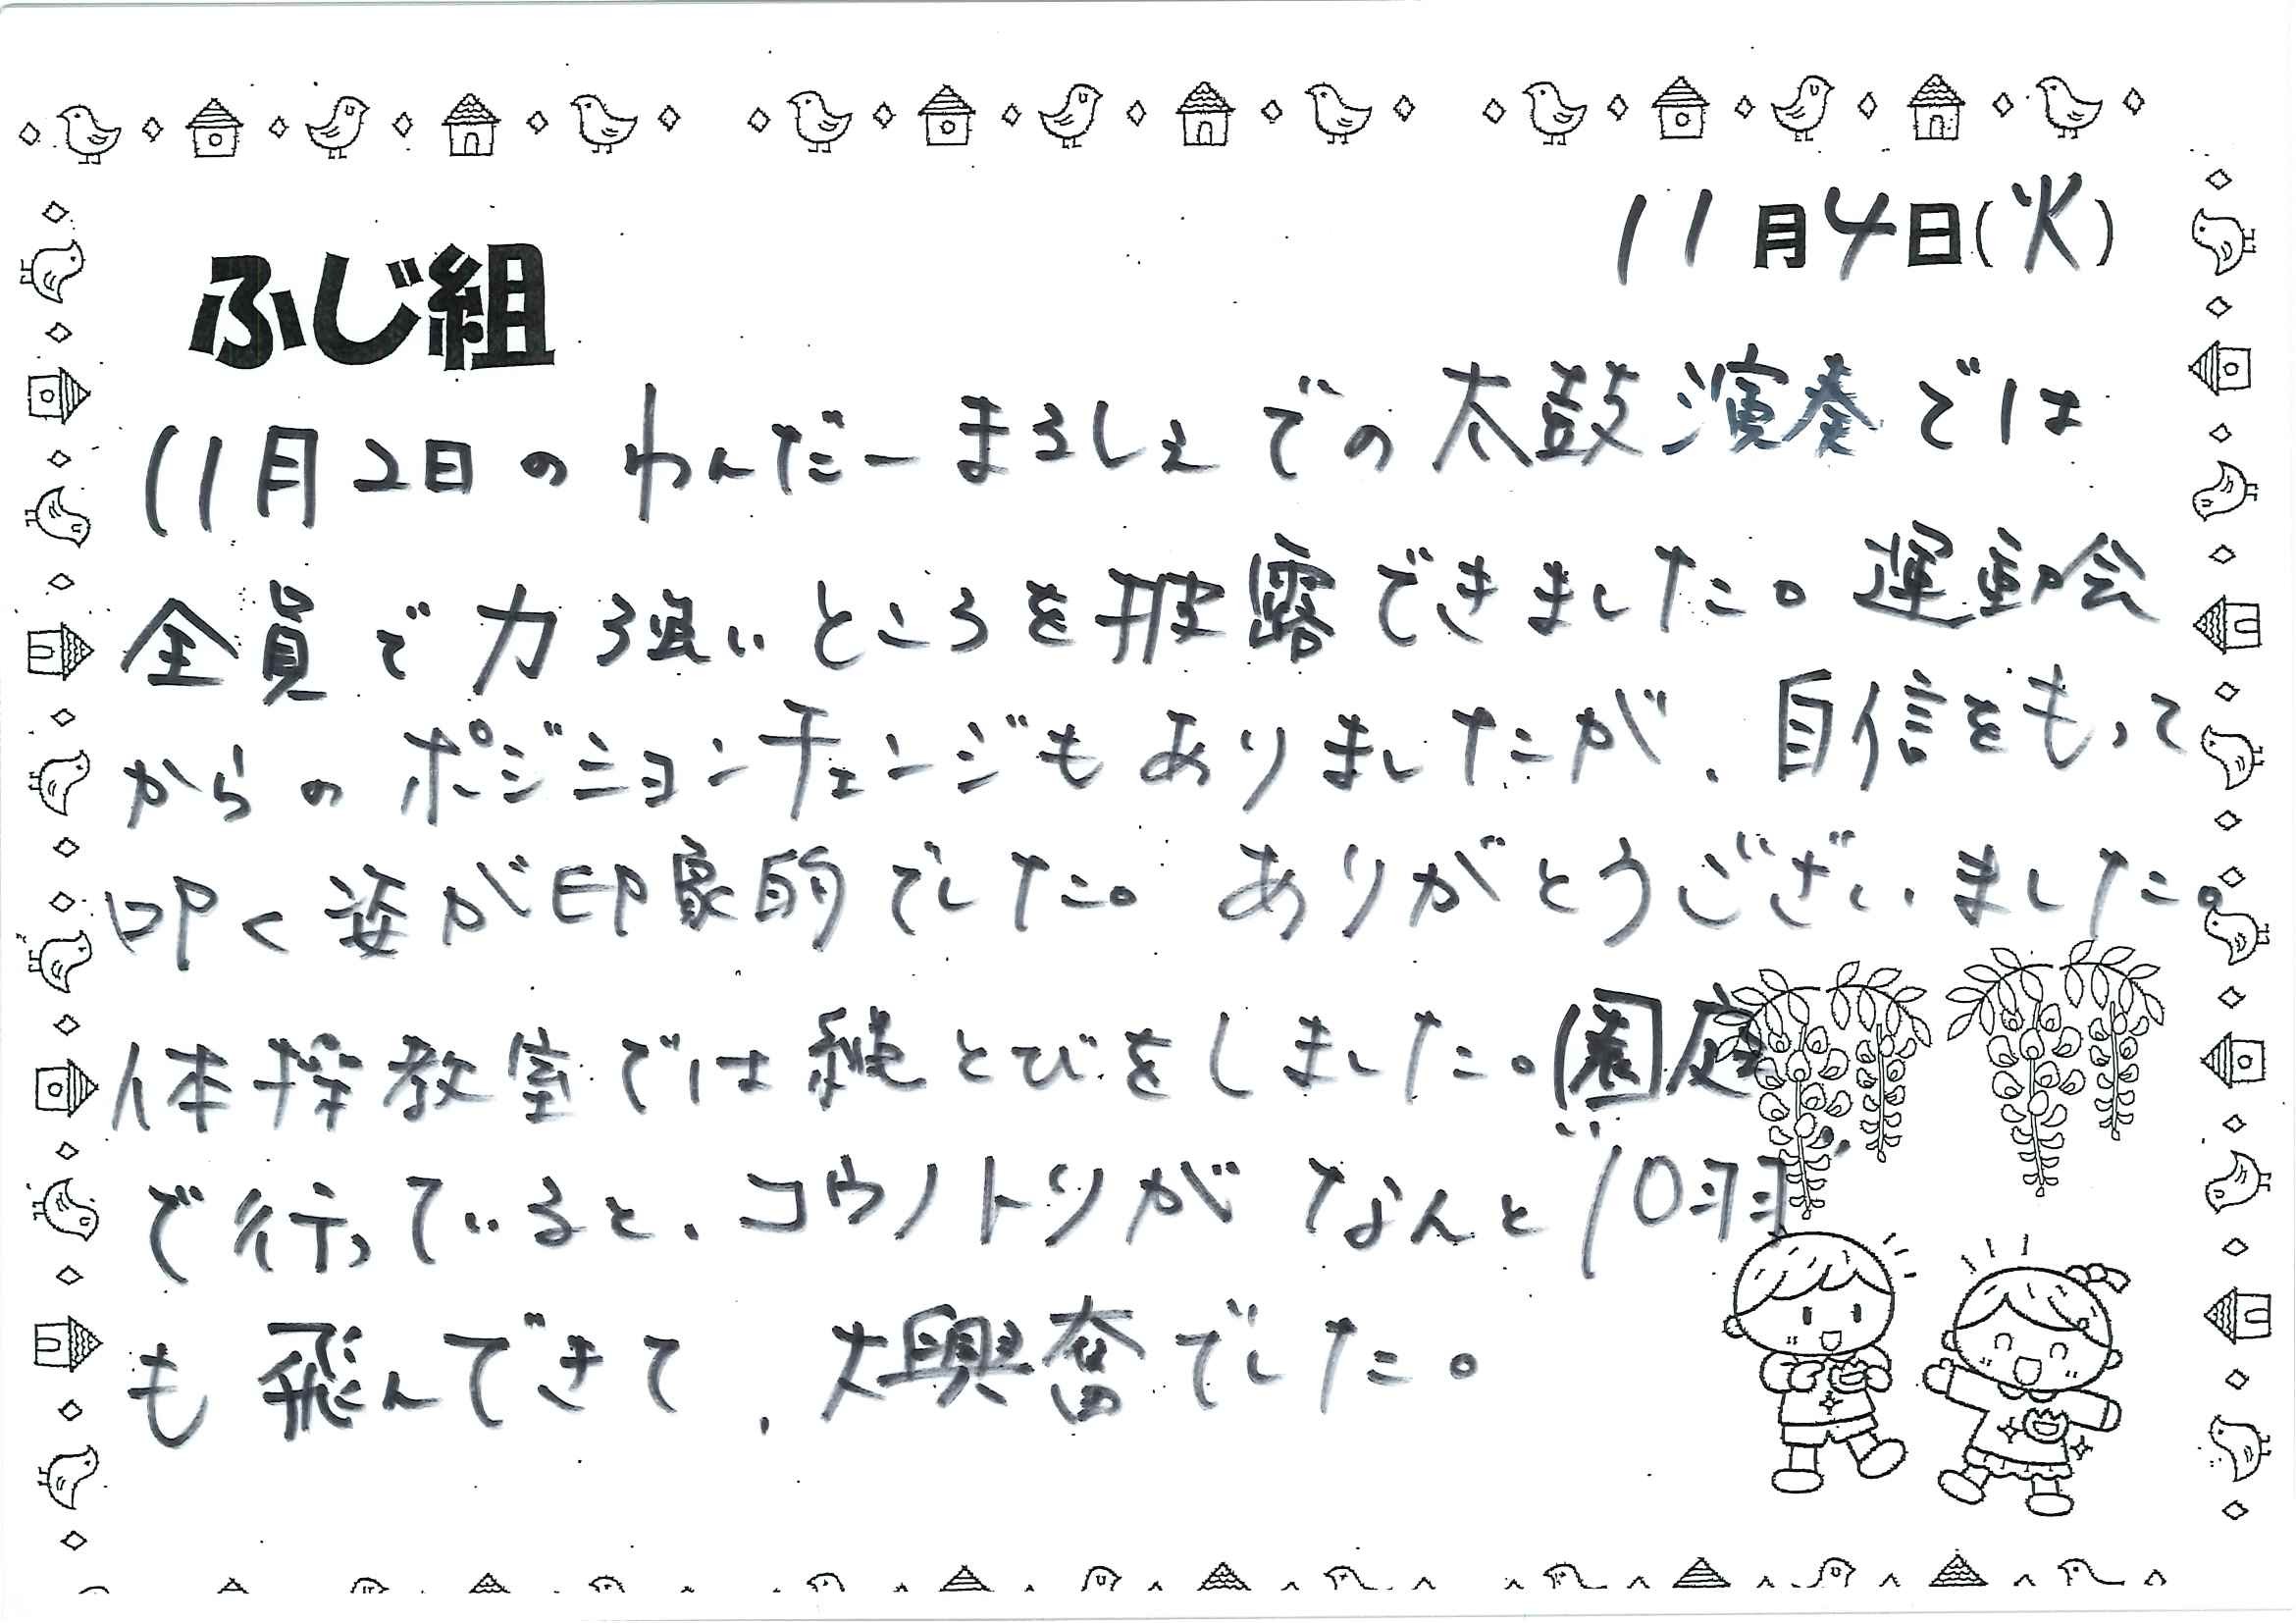 11月4日(火)
ふじ組
11月2日のわんだーまるしぇでの太鼓演奏では
全員で力強いところを披露できました。運動会
からのポジションチェンジもありましたが、自信をもって
叩く姿が印象的でした。ありがとうございました。
体操教室では縄とびをしました。園庭
で行っていると、コウノトリがなんと"10羽"
も飛んできて、大興奮でした。